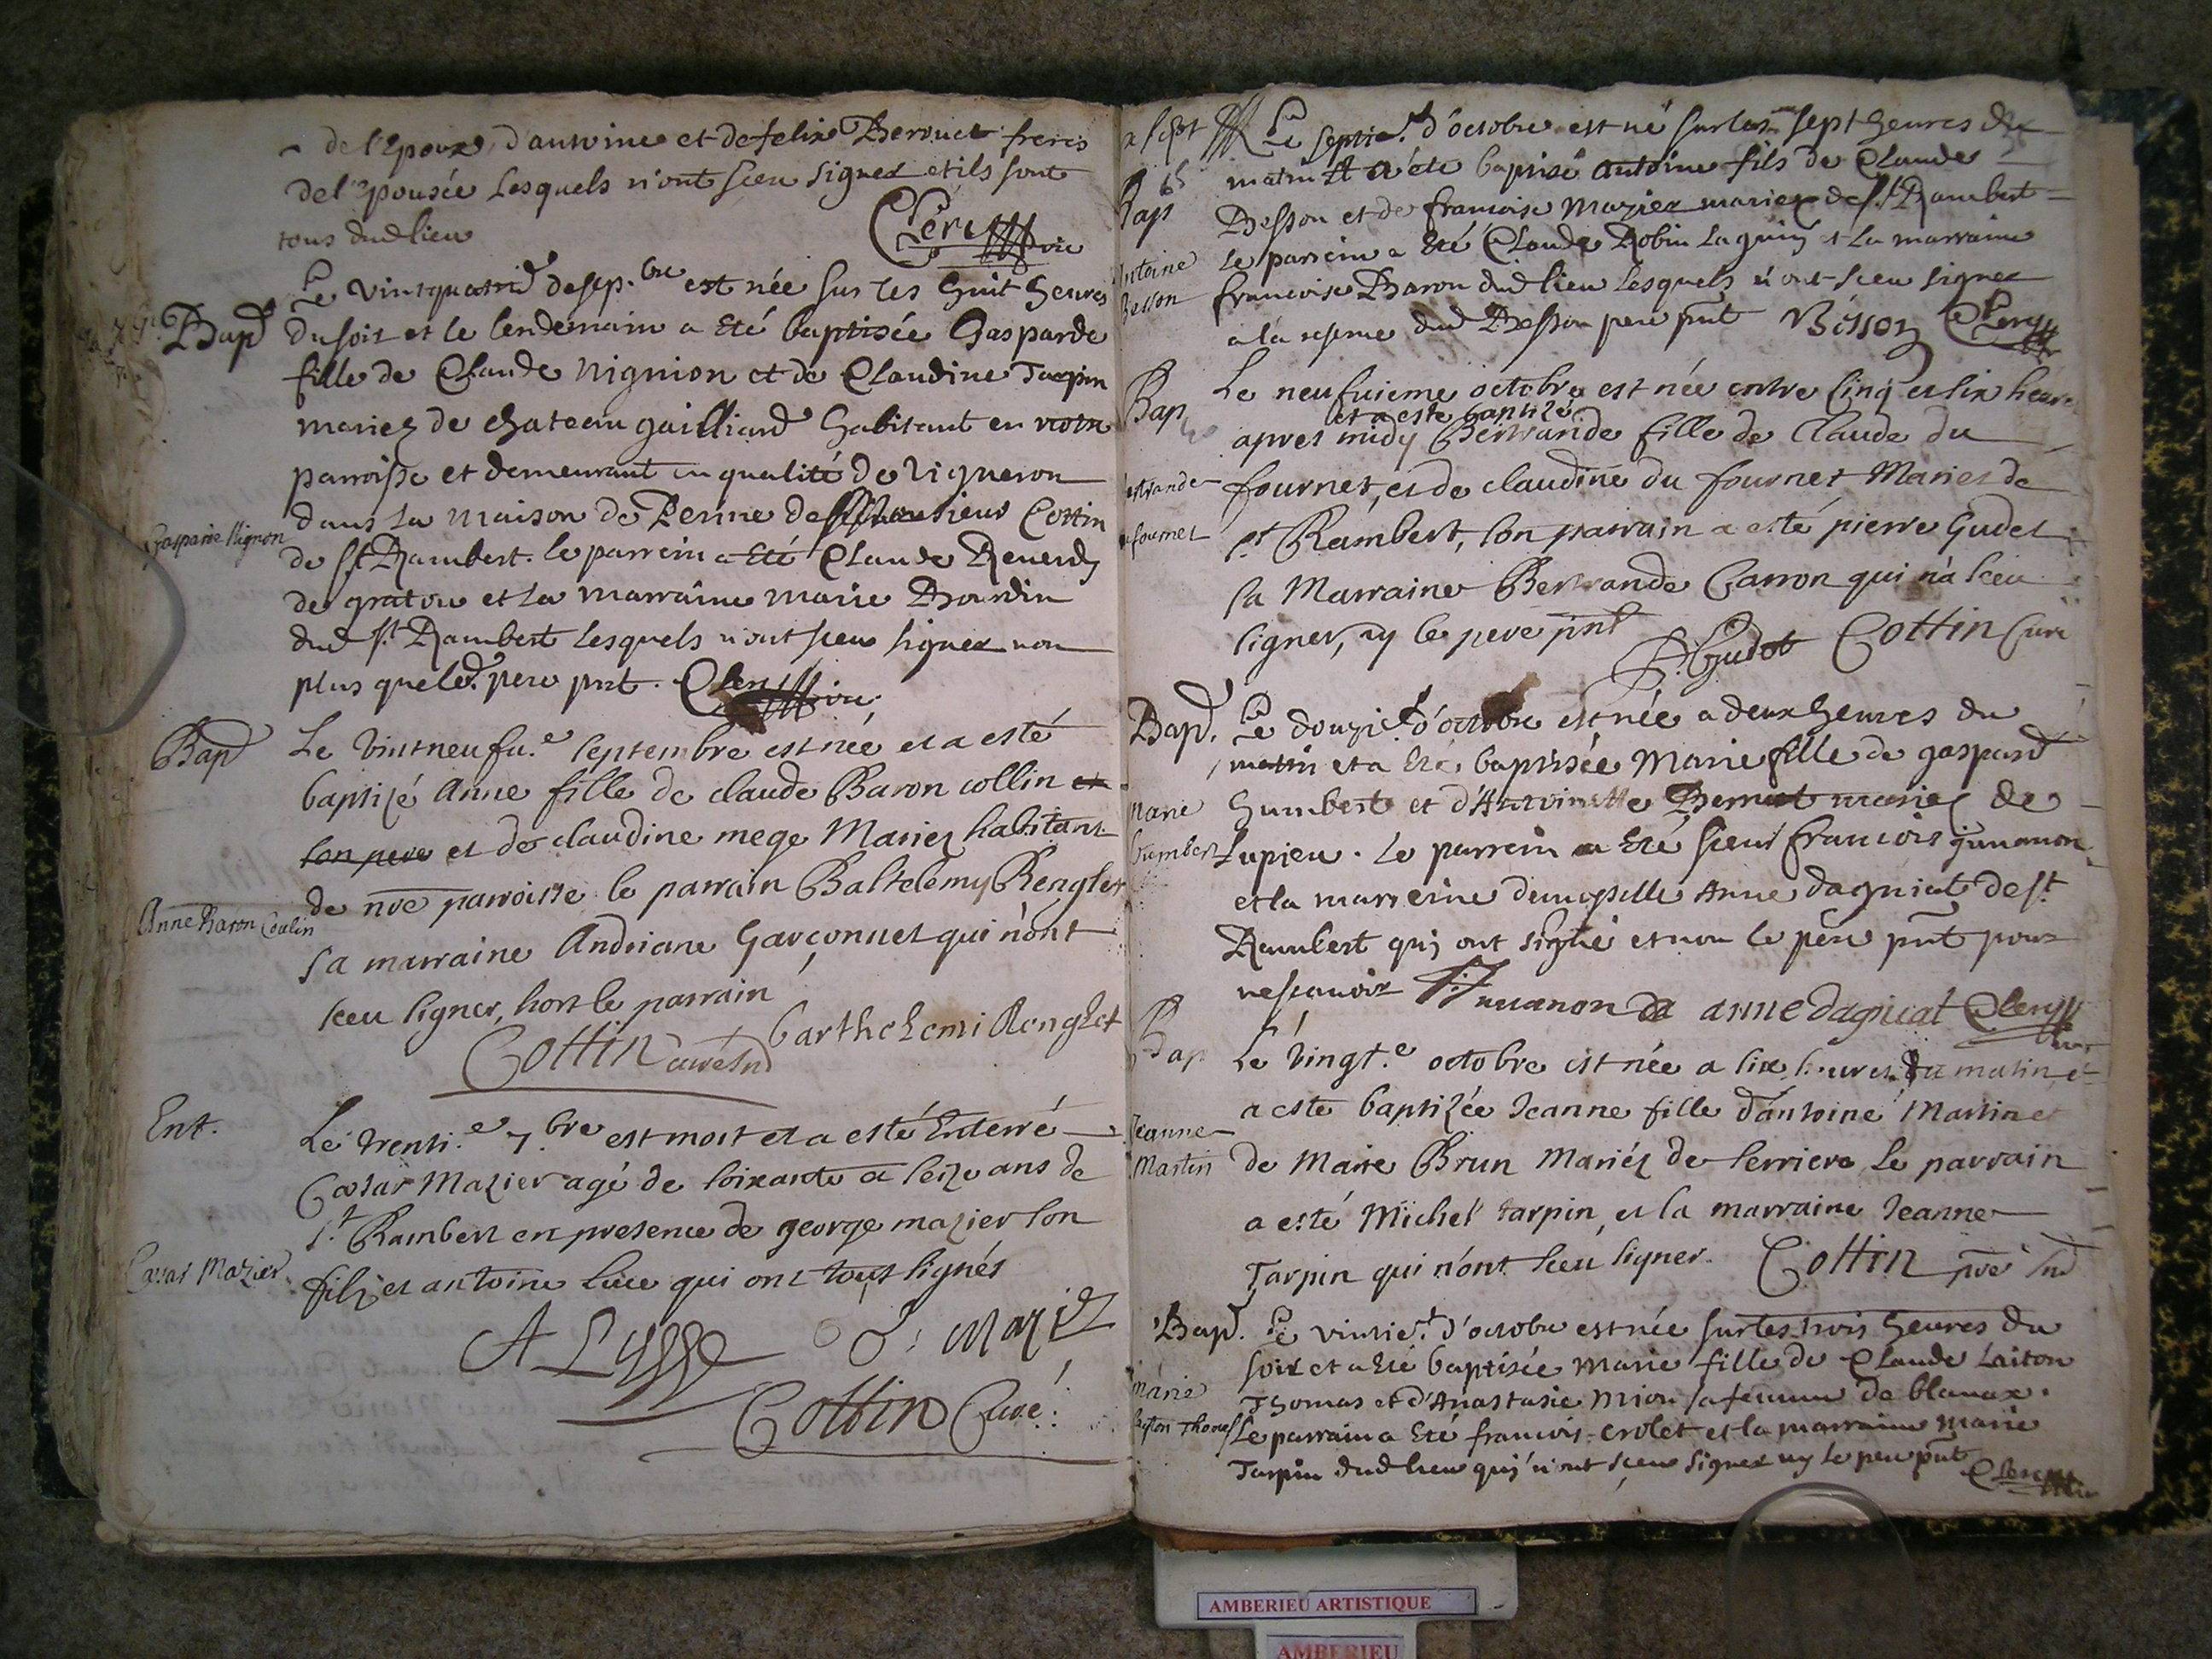 de l'Epoux, d'antoine et de felix Bervuet freres
de l'Epousée lesquels n'ont sceu signer et ils sont
tous dud lieu
Clerc vic
Bapd
Le vintquatrie de sep.bre est née sur les huit heures
du soir et le lendemain a Eté baptisée Gasparde
fille de Claude Nignion et de Claudine Tarpin
mariez de chateau gailliard habitant en notre
parroisse et demeurant en qualité de vigneron
dans la maison de Perine de sieur Cottin
Gasparde Nignon
de St Rambert. le parrein a Eté Claude Reverdy
de gratou et la marraine marie Bourdin
dud St Rambert lesquels n'ont sceu signer non
plus que led pere pnt. Clerc vic.
Bapd
Le vintneufu.e septembre est née et a esté
baptizé Anne fille de claude Baron collin et
son pere et de claudine mege Mariez habitans
de nre parroisse le parrain Baltelemy Renglet
Anne Baron Coulin
sa marraine Andriane Garçonnet qui n'ont
sceu signer, hors le parrain
Cottin curé sud barthelemi Renglet
Ent.
Le trenti.e 7.bre est mort et a esté Enterré
Cæsar Mazier agé de soixante a seize ans de
St. Rambert en presence de george mazier son
Cæsar Mazier
filz et antoine liue qui ont tous signés
A Lysse G: Mazier
Cottin Curé.
Le septie.d d'octobre est né sur les sept heures du
matin et a été baptisé Antoine fils de Claude
Bap
Besson et de francoise Mazier mariez de St Rambert
Antoine
Besson
le parrein a Eté Claude Robin laguin et la marraine
francoise Baron dud lieu lesquels n'ont sceu signer
a la reserve dud Besson pere pnt Besson Clerc
Bap
Le neufuieme octobre est née entre cinq et six heures
et a esté baptizé
apres midy Bertrande fille de Claude du
fournet, et de claudine du fournet Maries de
fournet
St Rambert, son parrain a esté pierre Gudet
sa Marraine Bertrande Carron qui n'a sceu
signer, ny le pere pnt
P Gudet Cottin Curé
Bapd.
Le douzie d'octobre est née a deux heures du
matin et a Eté baptisée Marie fille de gaspard
Marie
humbert
humbert et d'Antoinette Bernut mariez de
Lupieu. le parrein a Eté sieur francois Juuanon
et la marreine demoyselle Anne dagniat de St
Rambert quj ont signé et non le pere pnt pour
ne scavoir Juuanon anne dagniat Clerc
Bap
Le vingt.e octobre est née a six heures du matin et
a esté baptizée Jeanne fille d'antoine Martin et
Jeanne
Martin
de Marie Brun Mariez de serriere le parrain
a esté Michel tarpin, et la marraine Jeanne
Tarpin qui n'ont sceu signer. Cottin pre sud
Bapd.
Le vintie.d d'octobre est née sur les trois heures du
soir et a eté baptisée Marie fille de Claude laiton
Marie
Thomas et d'Anastasie Mion sa femme de blanax.
Le parrain a Eté francois crolet et la marraine marie
Tarpin dud lieu quj n'ont sceu signer ny le pere pnt
Clerc
AMBERIEU ARTISTIQUE
AMBERIEU